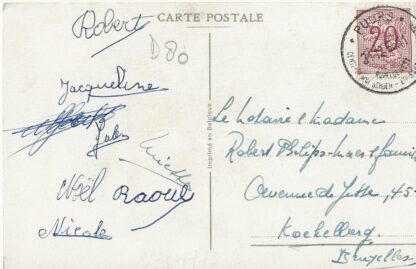 CARTE POSTALE
Robert
D80
Jacqueline
Jules
Noël Raoul
Nicole
Imprimé en Belgique
PUURS
20
Le Notaire & Madame
Robert Philips-maes & famille
Avenue de Jette, 45-
Koekelberg.
Bruxelles